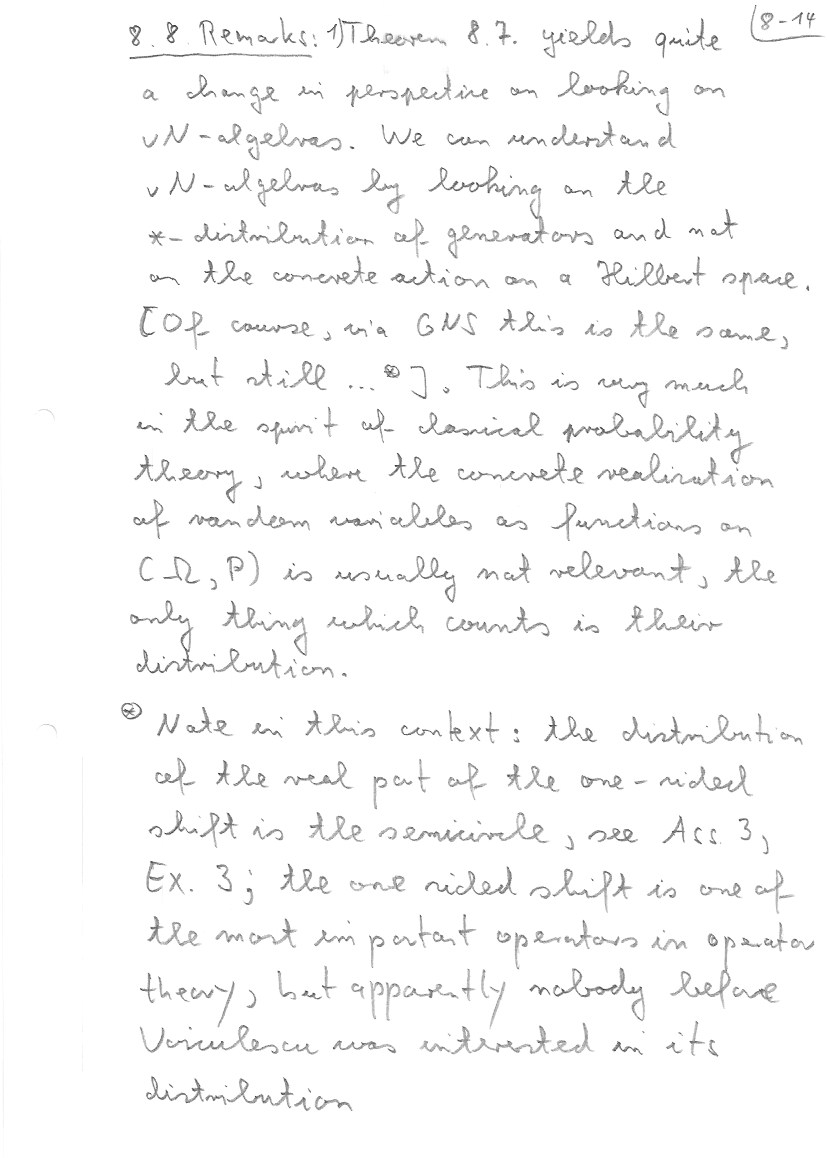 8-14
8.8 Remarks: 1) Theorem 8.7. yields quite
a change in perspective on looking on
vN-algebras. We can understand
vN-algebras by looking on the
*-distribution of generators and not
on the concrete action on a Hilbert space.
[Of course, via GNS this is the same,
but still ... ⊛ ]. This is very much
in the spirit of classical probability
theory, where the concrete realization
of random variables as functions on
(Ω, P) is usually not relevant, the
only thing which counts is their
distribution.
⊛ Note in this context: the distribution
of the real part of the one-sided
shift is the semicircle, see Ass. 3,
Ex. 3; the one sided shift is one of
the most important operators in operator
theory, but apparently nobody before
Voiculescu was interested in its
distribution